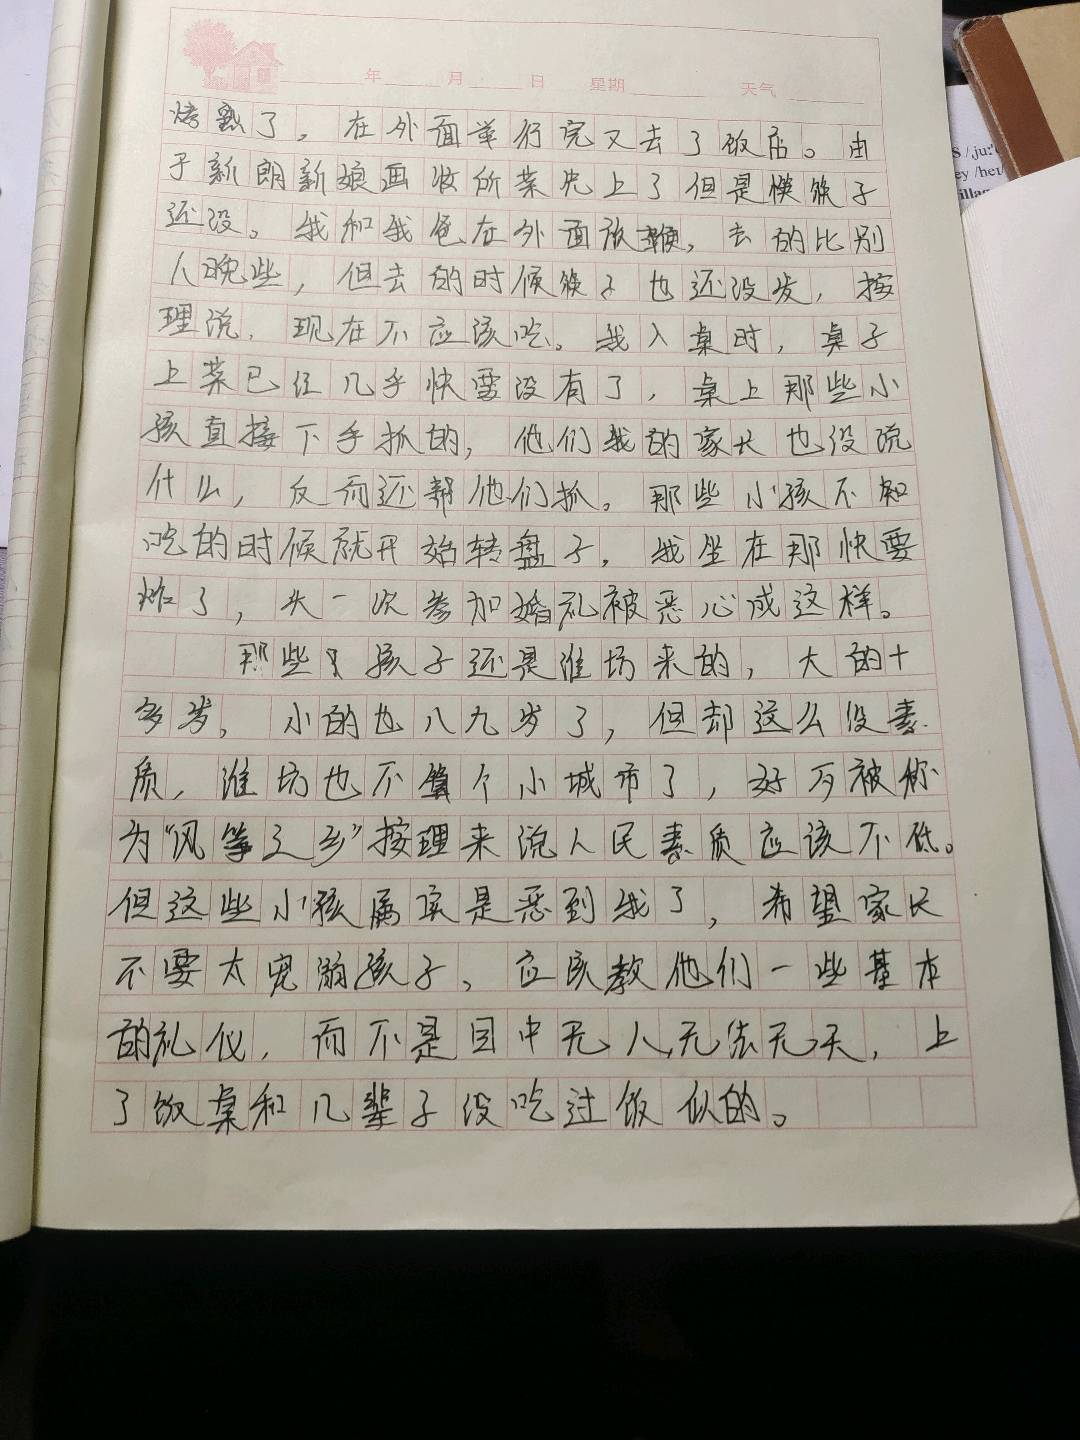 年 月 日 星期 天气
烤熟了，在外面举行完又去了饭店。由
于新朗新娘画妆所菜先上了但是筷子
还没。我和我爸在外面放鞭，去的比别
人晚些，但去的时候筷子也还没发，按
理说，现在不应该吃。我入桌时，桌子
上菜已经几乎快要没有了，桌上那些小
孩直接下手抓的，他们我的家长也没说
什么，反而还帮他们抓。那些小孩不知
吃的时候就开始转盘子，我坐在那快要
炸了，头一次参加婚礼被恶心成这样。
那些孩子还是潍坊来的，大的十
多岁，小的也八九岁了，但却这么没素
质，潍坊也不算个小城市了，好歹被称
为“风筝之乡”按理来说人民素质应该不低。
但这些小孩属实是恶到我了，希望家长
不要太宠溺孩子，应该教他们一些基本
的礼仪，而不是目中无人，无法无天，上
了饭桌和几辈子没吃过饭似的。